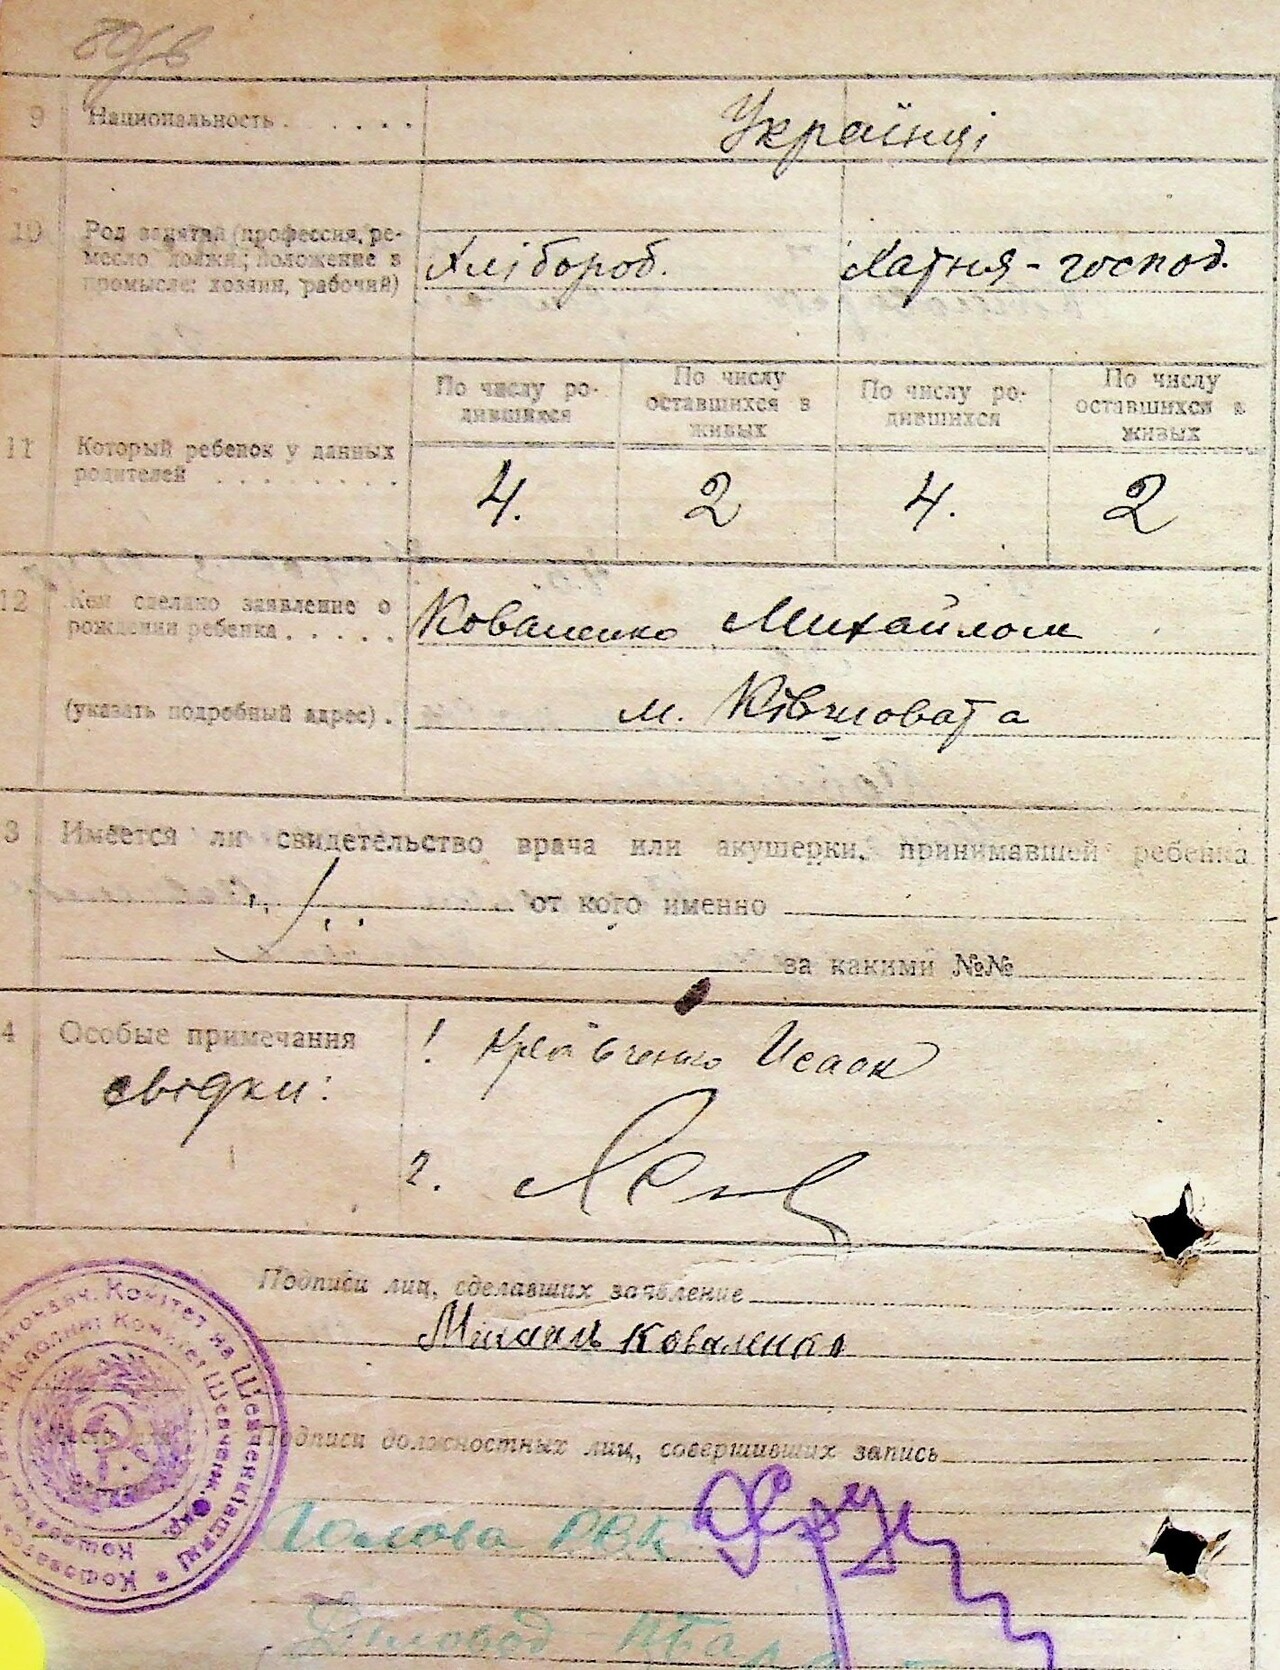 9 Национальность . . . . . . Українці
10 Род занятий (профессия, ре-
месло должн.; положение в
промысле: хозяин, рабочий)
Хлібороб. Хатня - господ.
По числу ро-
дившихся
По числу
оставшихся в
живых
По числу ро-
дившихся
По числу
оставшихся в
живых
11 Который ребенок у данных
родителей . . . . . . . .
4. 2 4. 2
12 Кем сделано заявление о
рождении ребенка . . . . . Коваленко Михайлом
(указать подробный адрес) . м. Ківшовата
3 Имеется ли свидетельство врача или акушерки, принимавшей ребенка
от кого именно
за какими №№
4 Особые примечания
свідки:
1. Кравченко Исаак
2.
Подписи лиц, сделавших заявление
Михаил Коваленко
Подписи должностных лиц, совершивших запись
Голова РВК
Діловод
Комітет на Шевченківщині
Исполнит. Комитет Шевченк. Окр.